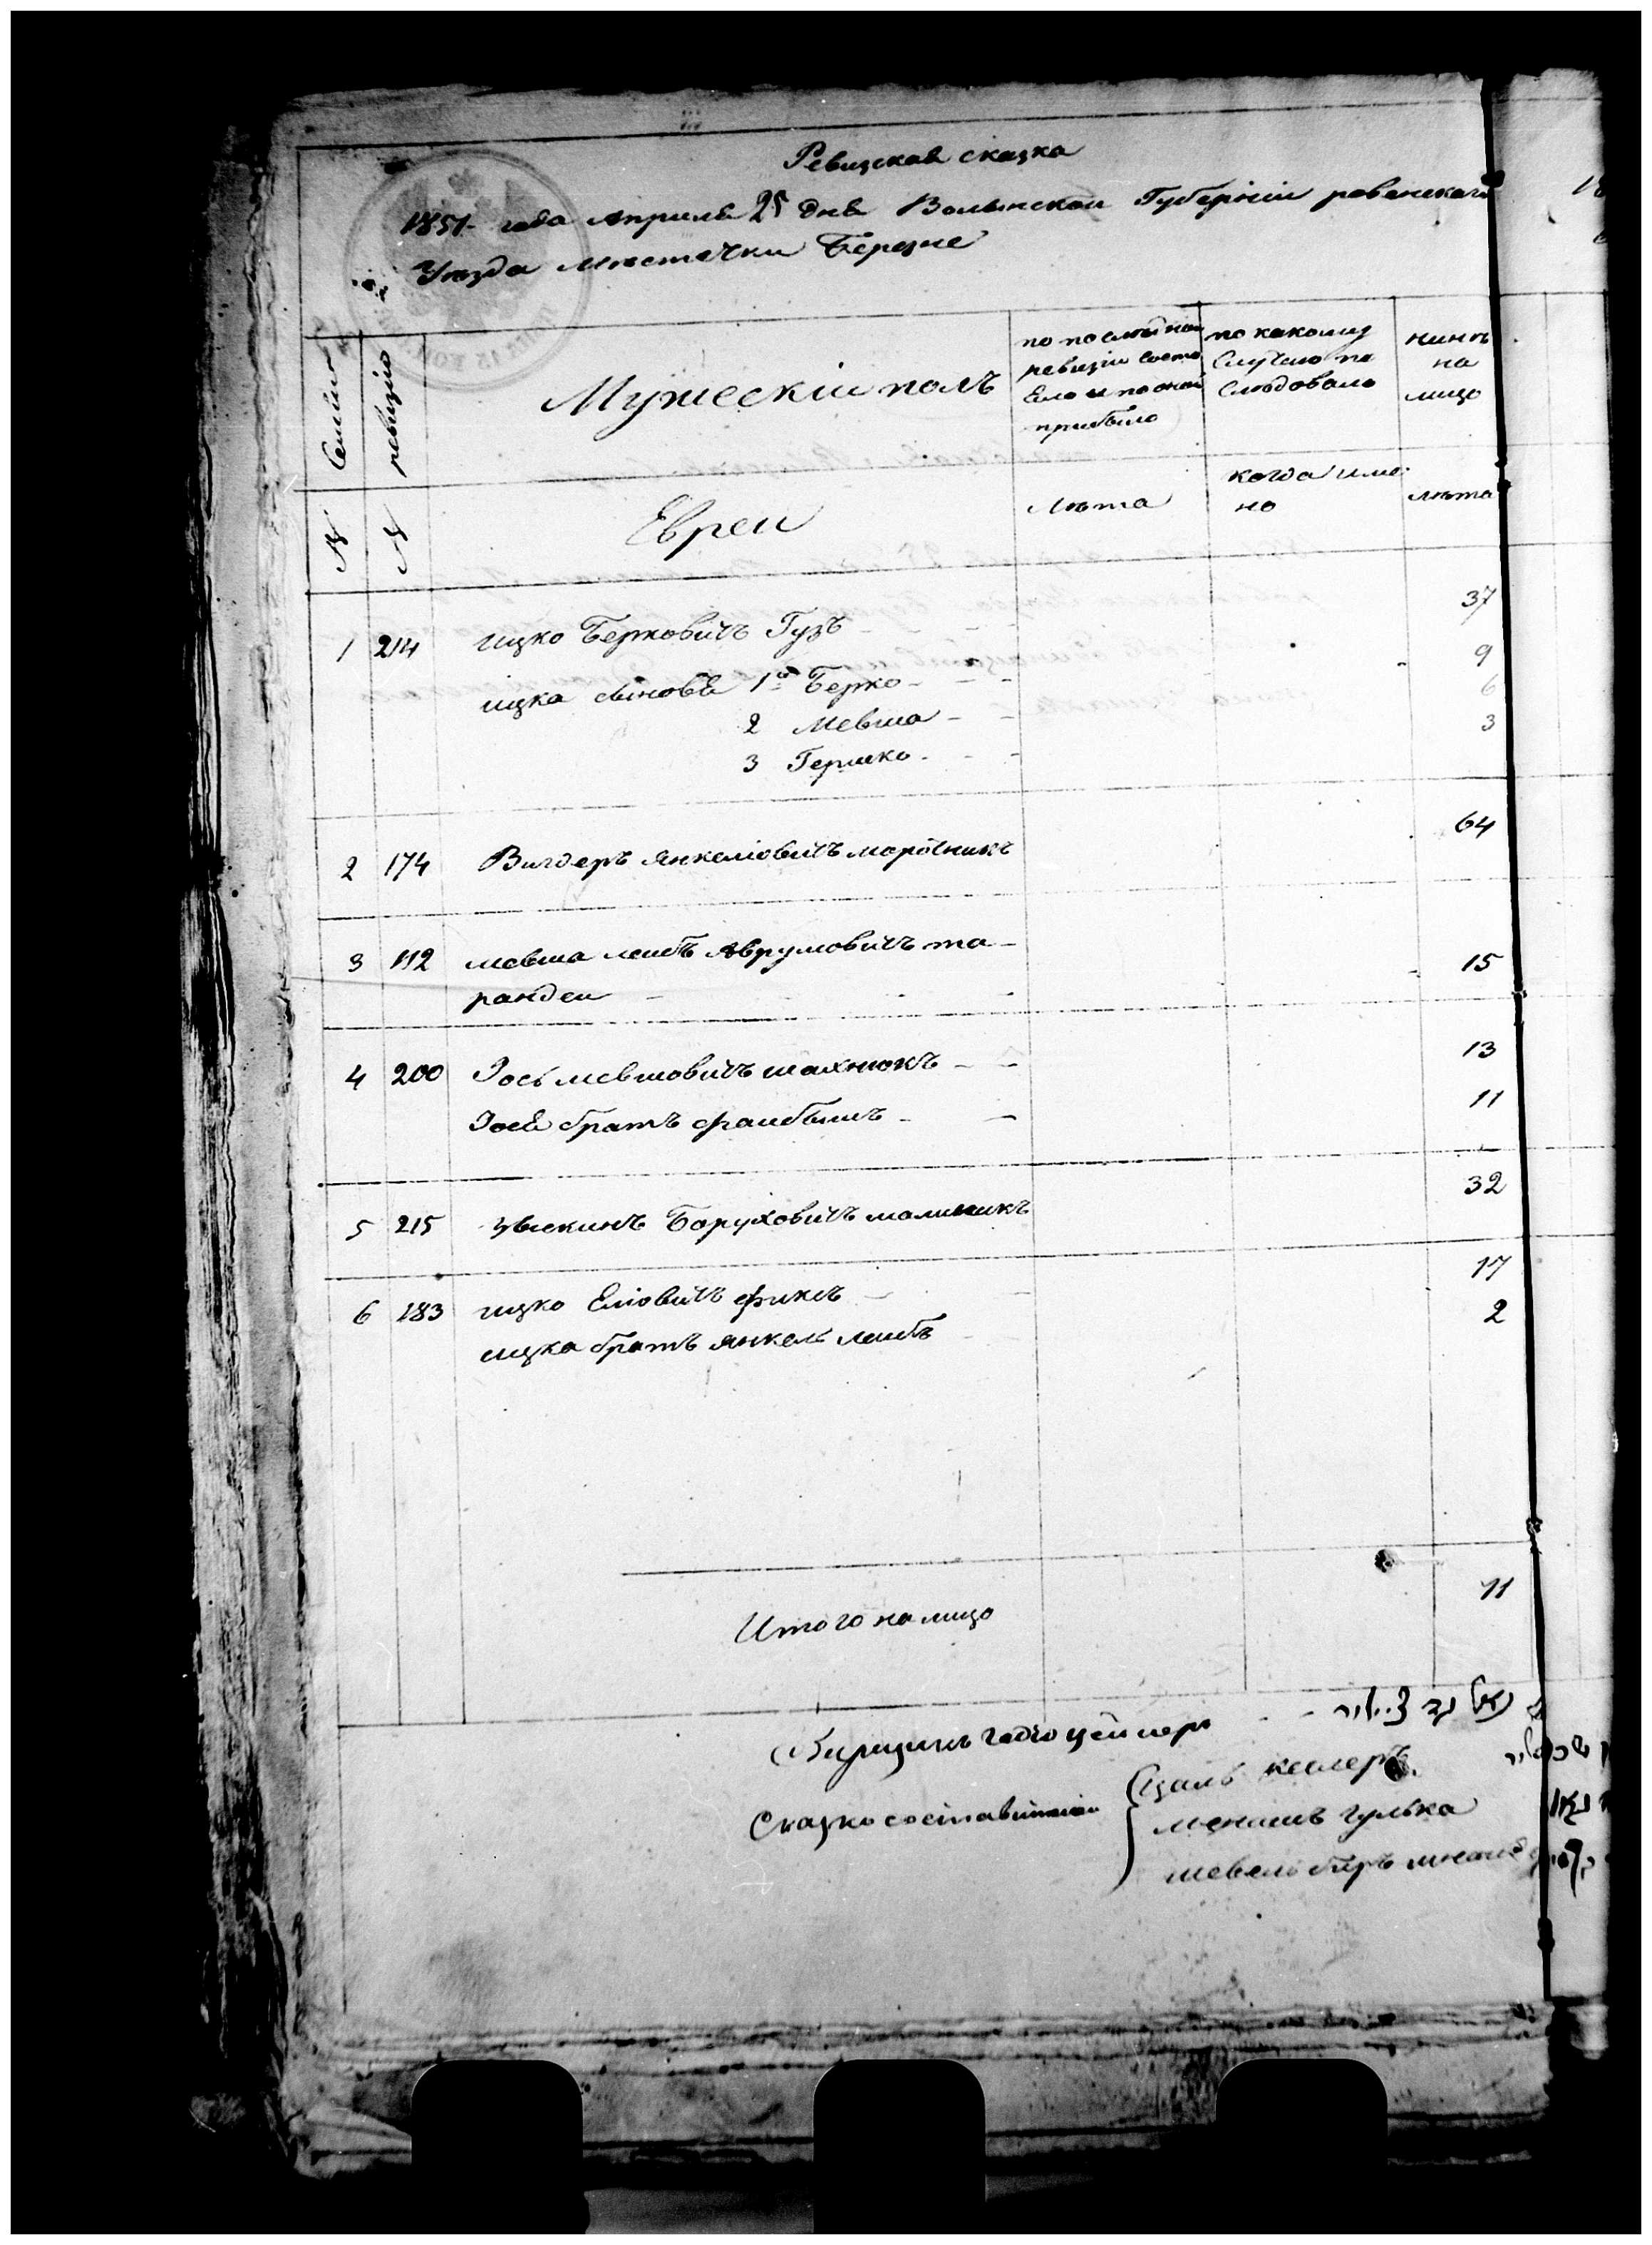 Ревизская сказка
1851 года Апреля 25 дня Волынской Губерніи ровенскаго
Уезда Местечки Березне
Семью
ревизію
Мужескій полъ
по последной
ревизіи состо
Ело и по оной
прибыло
по какому
Случаю по
следовало
нинѣ
на
лицо
№
№
Евреи
лѣта
когда имѣ
но
лѣта
1 214 ицко Берковичъ Гузъ 37
ицка сыновя 1й Берко 9
2 Мевша 6
3 Гершко 3
2 174 Вигдеръ янкеліовичъ марочникъ 64
3 112 мевша лейбъ Аврумовичъ та-
рандеи 15
4 200 Іось мевшовичъ шахнюкъ 13
Іося братъ файбышъ 11
5 215 Баруховичъ малишикъ 32
6 183 ицко Еліовичъ фиксъ 17
ицка братъ янкель лейбъ 2
Итого на лицо 11
Сказко составители
кеслеръ
гулька
шевель беръ